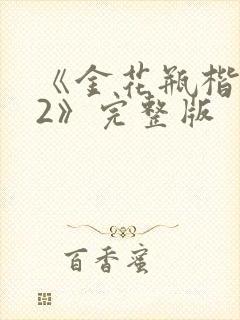 《金花瓶楷
2》完整版
百香蜜